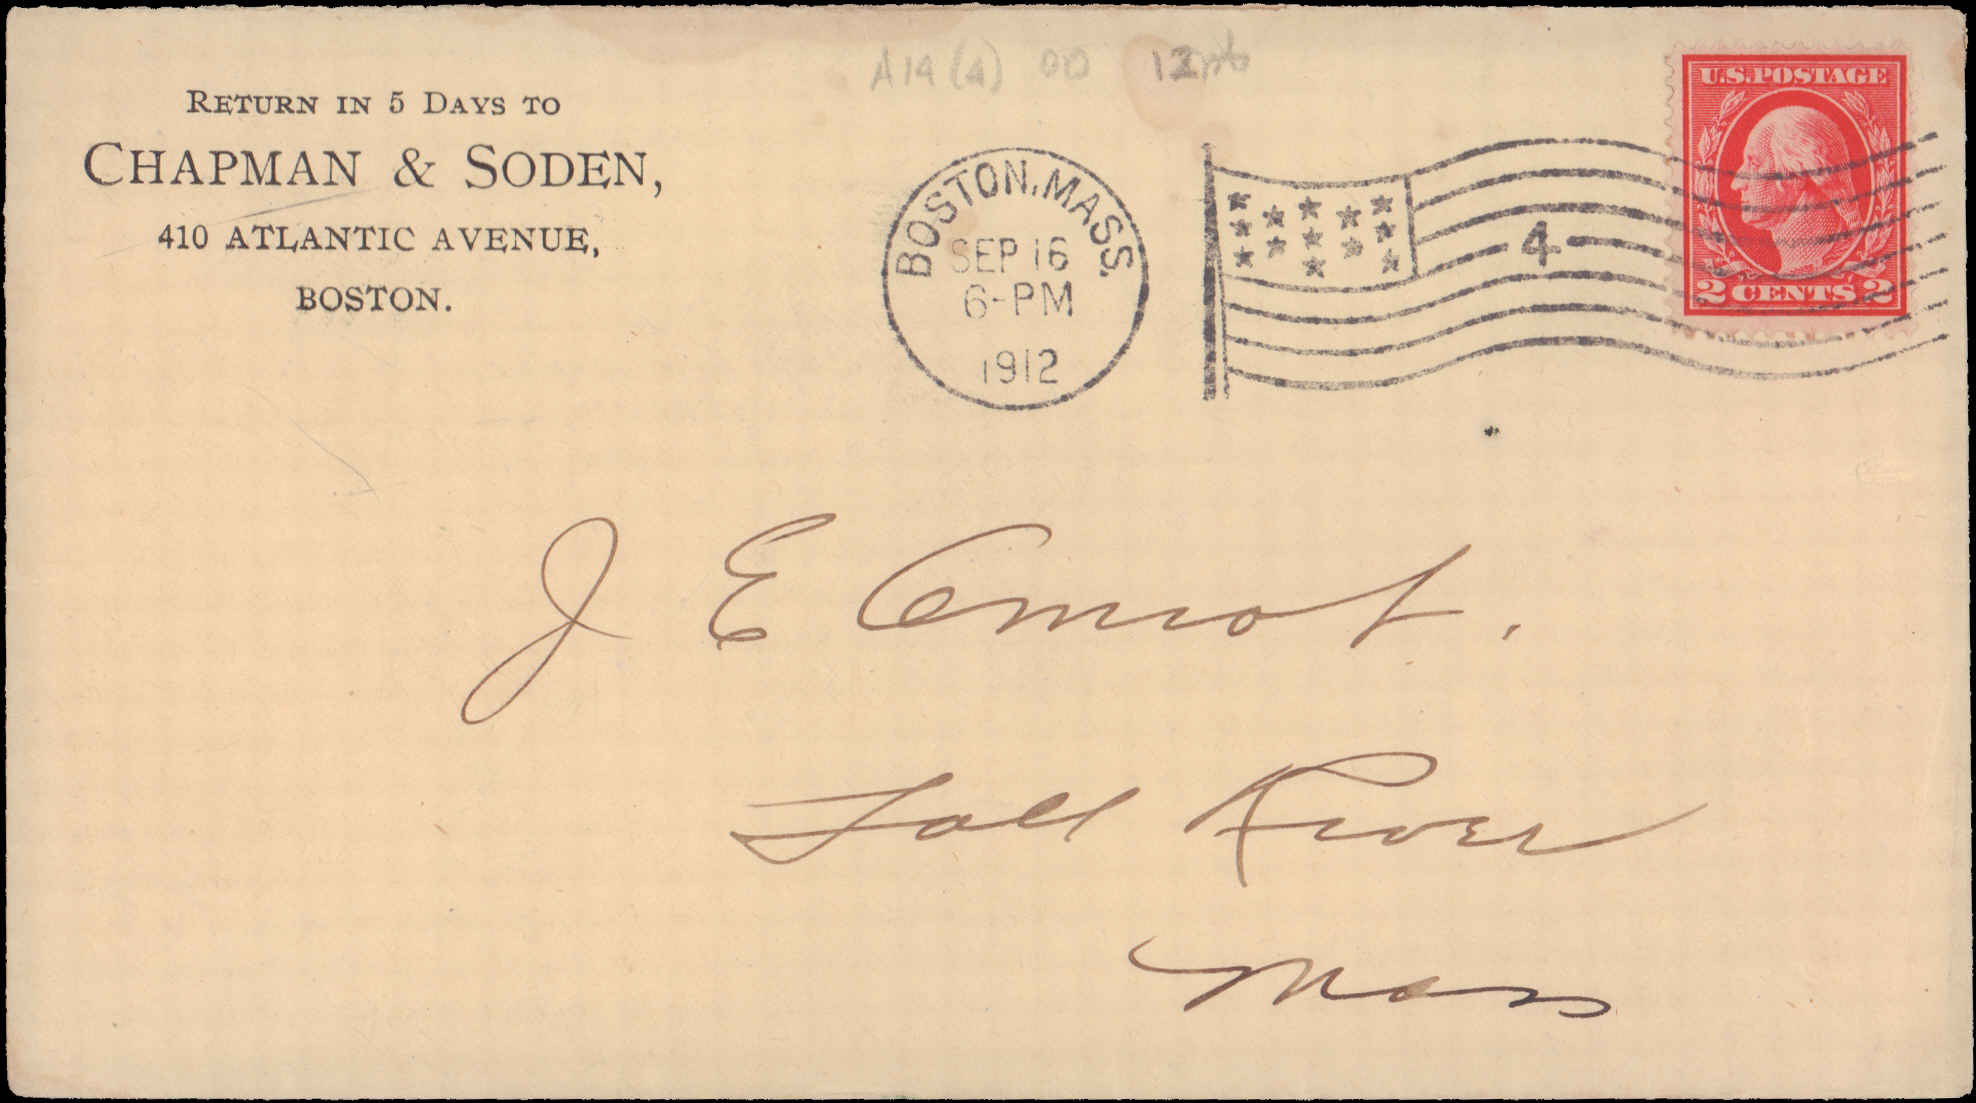 A14 (4) 00 12
RETURN IN 5 DAYS TO
CHAPMAN & SODEN,
410 ATLANTIC AVENUE,
BOSTON.
BOSTON, MASS.
SEP 16
6-PM
1912
4
U.S. POSTAGE
2 CENTS 2
J E
Fall River
Mass